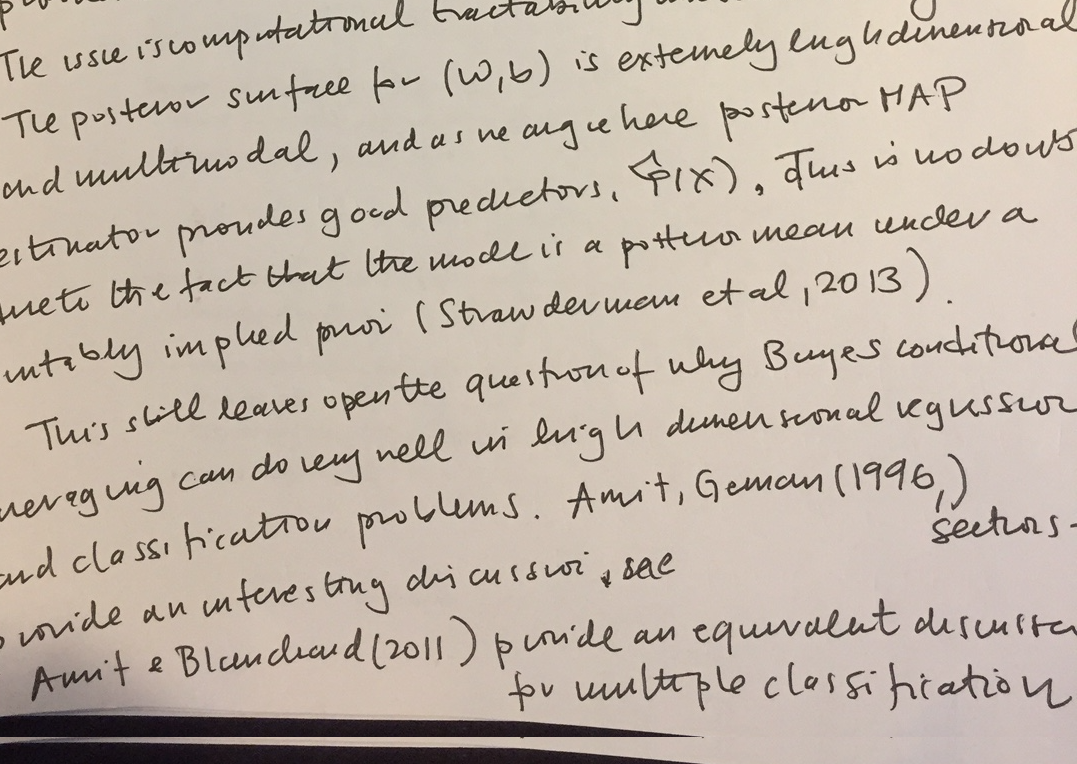 The issue is computational tractability
The posterior surface for (W,b) is extemely high dimensional
and multimodal, and as we argue here posterior MAP
estimator provides good predictors, Ŷ(X), This is no doubt
due to the fact that the mode is a posterior mean under a
suitably implied prior (Strawderman et al, 2013).
This still leaves open the question of why Bayes conditional
averaging can do very well in high dimensional regression
and classification problems. Amit, Geman (1996,)
sections-
provide an interesting discussion, see
Amit & Blanchard (2011) provide an equivalent discussion
for multiple classification